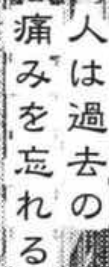 人は過去の
痛みを忘れる